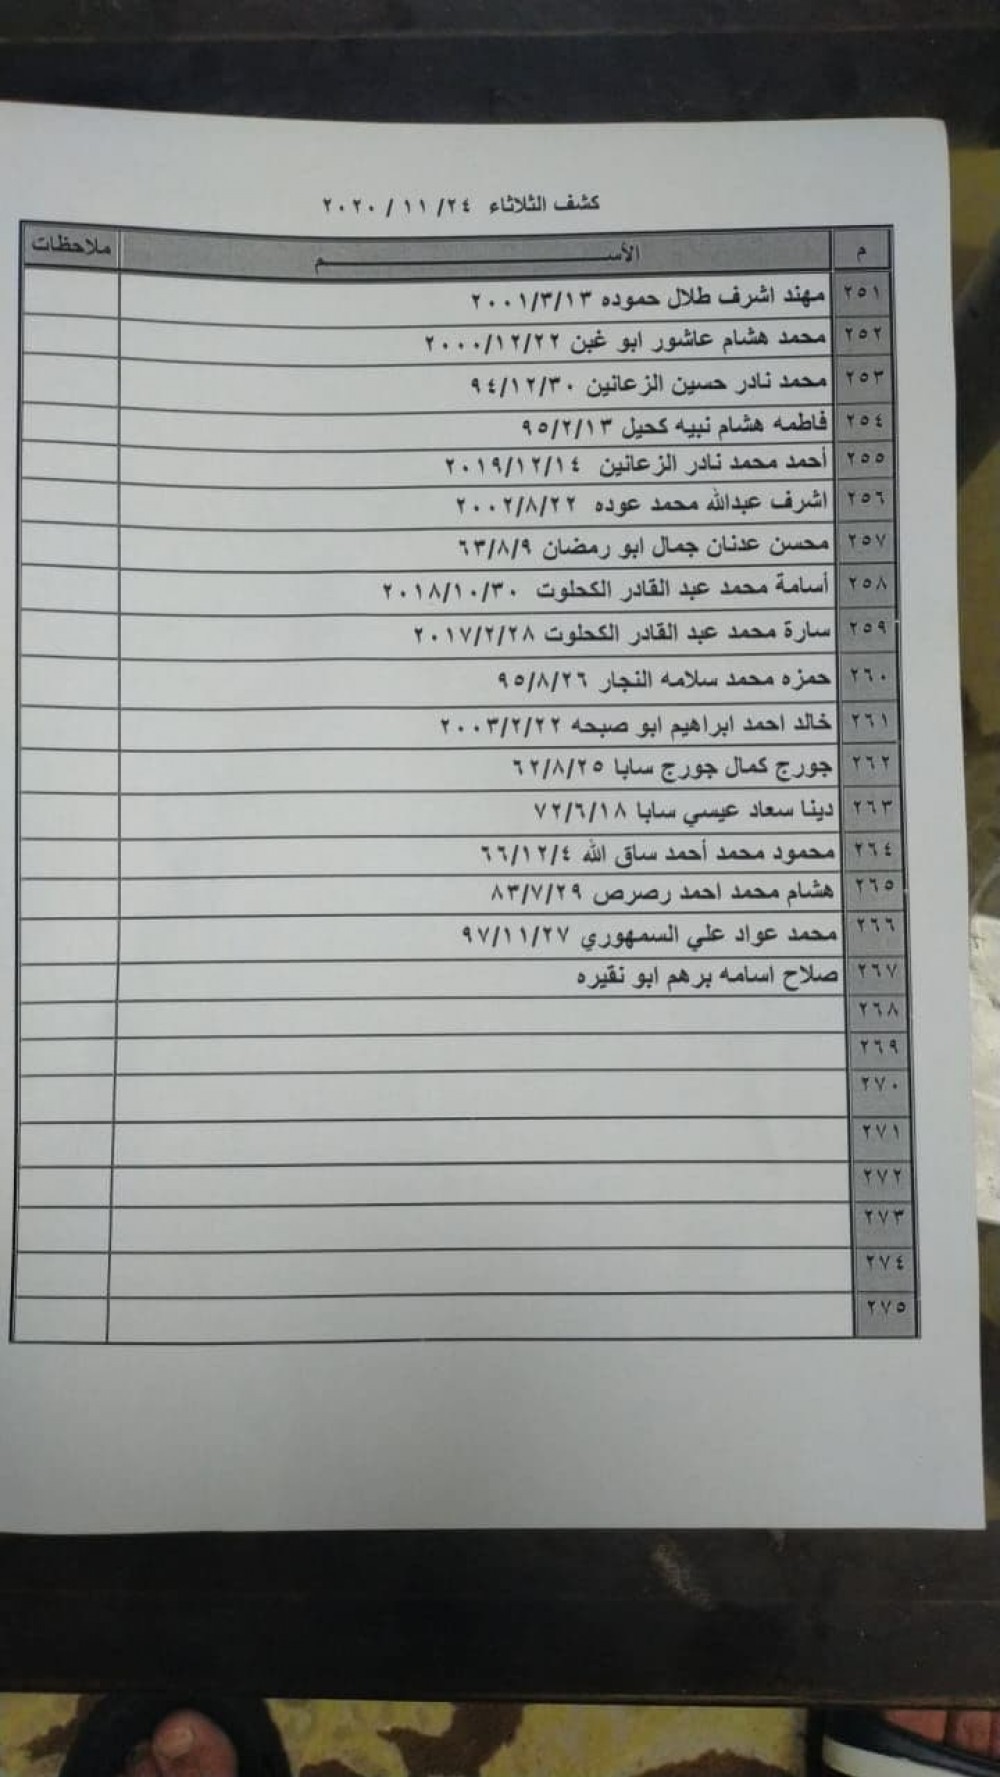 كشف الثلاثاء ٢٤/ ١١ / ٢٠٢٠
م الأســـــم ملاحظات
٢٥١ مهند اشرف طلال حموده ٢٠٠١/٣/١٣
٢٥٢ محمد هشام عاشور ابو غبن ٢٠٠٠/١٢/٢٢
٢٥٣ محمد نادر حسين الزعانين ٩٤/١٢/٣٠
٢٥٤ فاطمه هشام نبيه كحيل ٩٥/٢/١٣
٢٥٥ أحمد محمد نادر الزعانين ٢٠١٩/١٢/١٤
٢٥٦ اشرف عبدالله محمد عوده ٢٠٠٢/٨/٢٢
٢٥٧ محسن عدنان جمال ابو رمضان ٦٣/٨/٩
٢٥٨ أسامة محمد عبد القادر الكحلوت ٢٠١٨/١٠/٣٠
٢٥٩ سارة محمد عبد القادر الكحلوت ٢٠١٧/٢/٢٨
٢٦٠ حمزه محمد سلامه النجار ٩٥/٨/٢٦
٢٦١ خالد احمد ابراهيم ابو صبحه ٢٠٠٣/٢/٢٢
٢٦٢ جورج كمال جورج سابا ٦٢/٨/٢٥
٢٦٣ دينا سعاد عيسي سابا ٧٢/٦/١٨
٢٦٤ محمود محمد أحمد ساق الله ٦٦/١٢/٤
٢٦٥ هشام محمد احمد رصرص ٨٣/٧/٢٩
٢٦٦ محمد عواد علي السمهوري ٩٧/١١/٢٧
٢٦٧ صلاح اسامه برهم ابو نقيره
٢٦٨
٢٦٩
٢٧٠
٢٧١
٢٧٢
٢٧٣
٢٧٤
٢٧٥